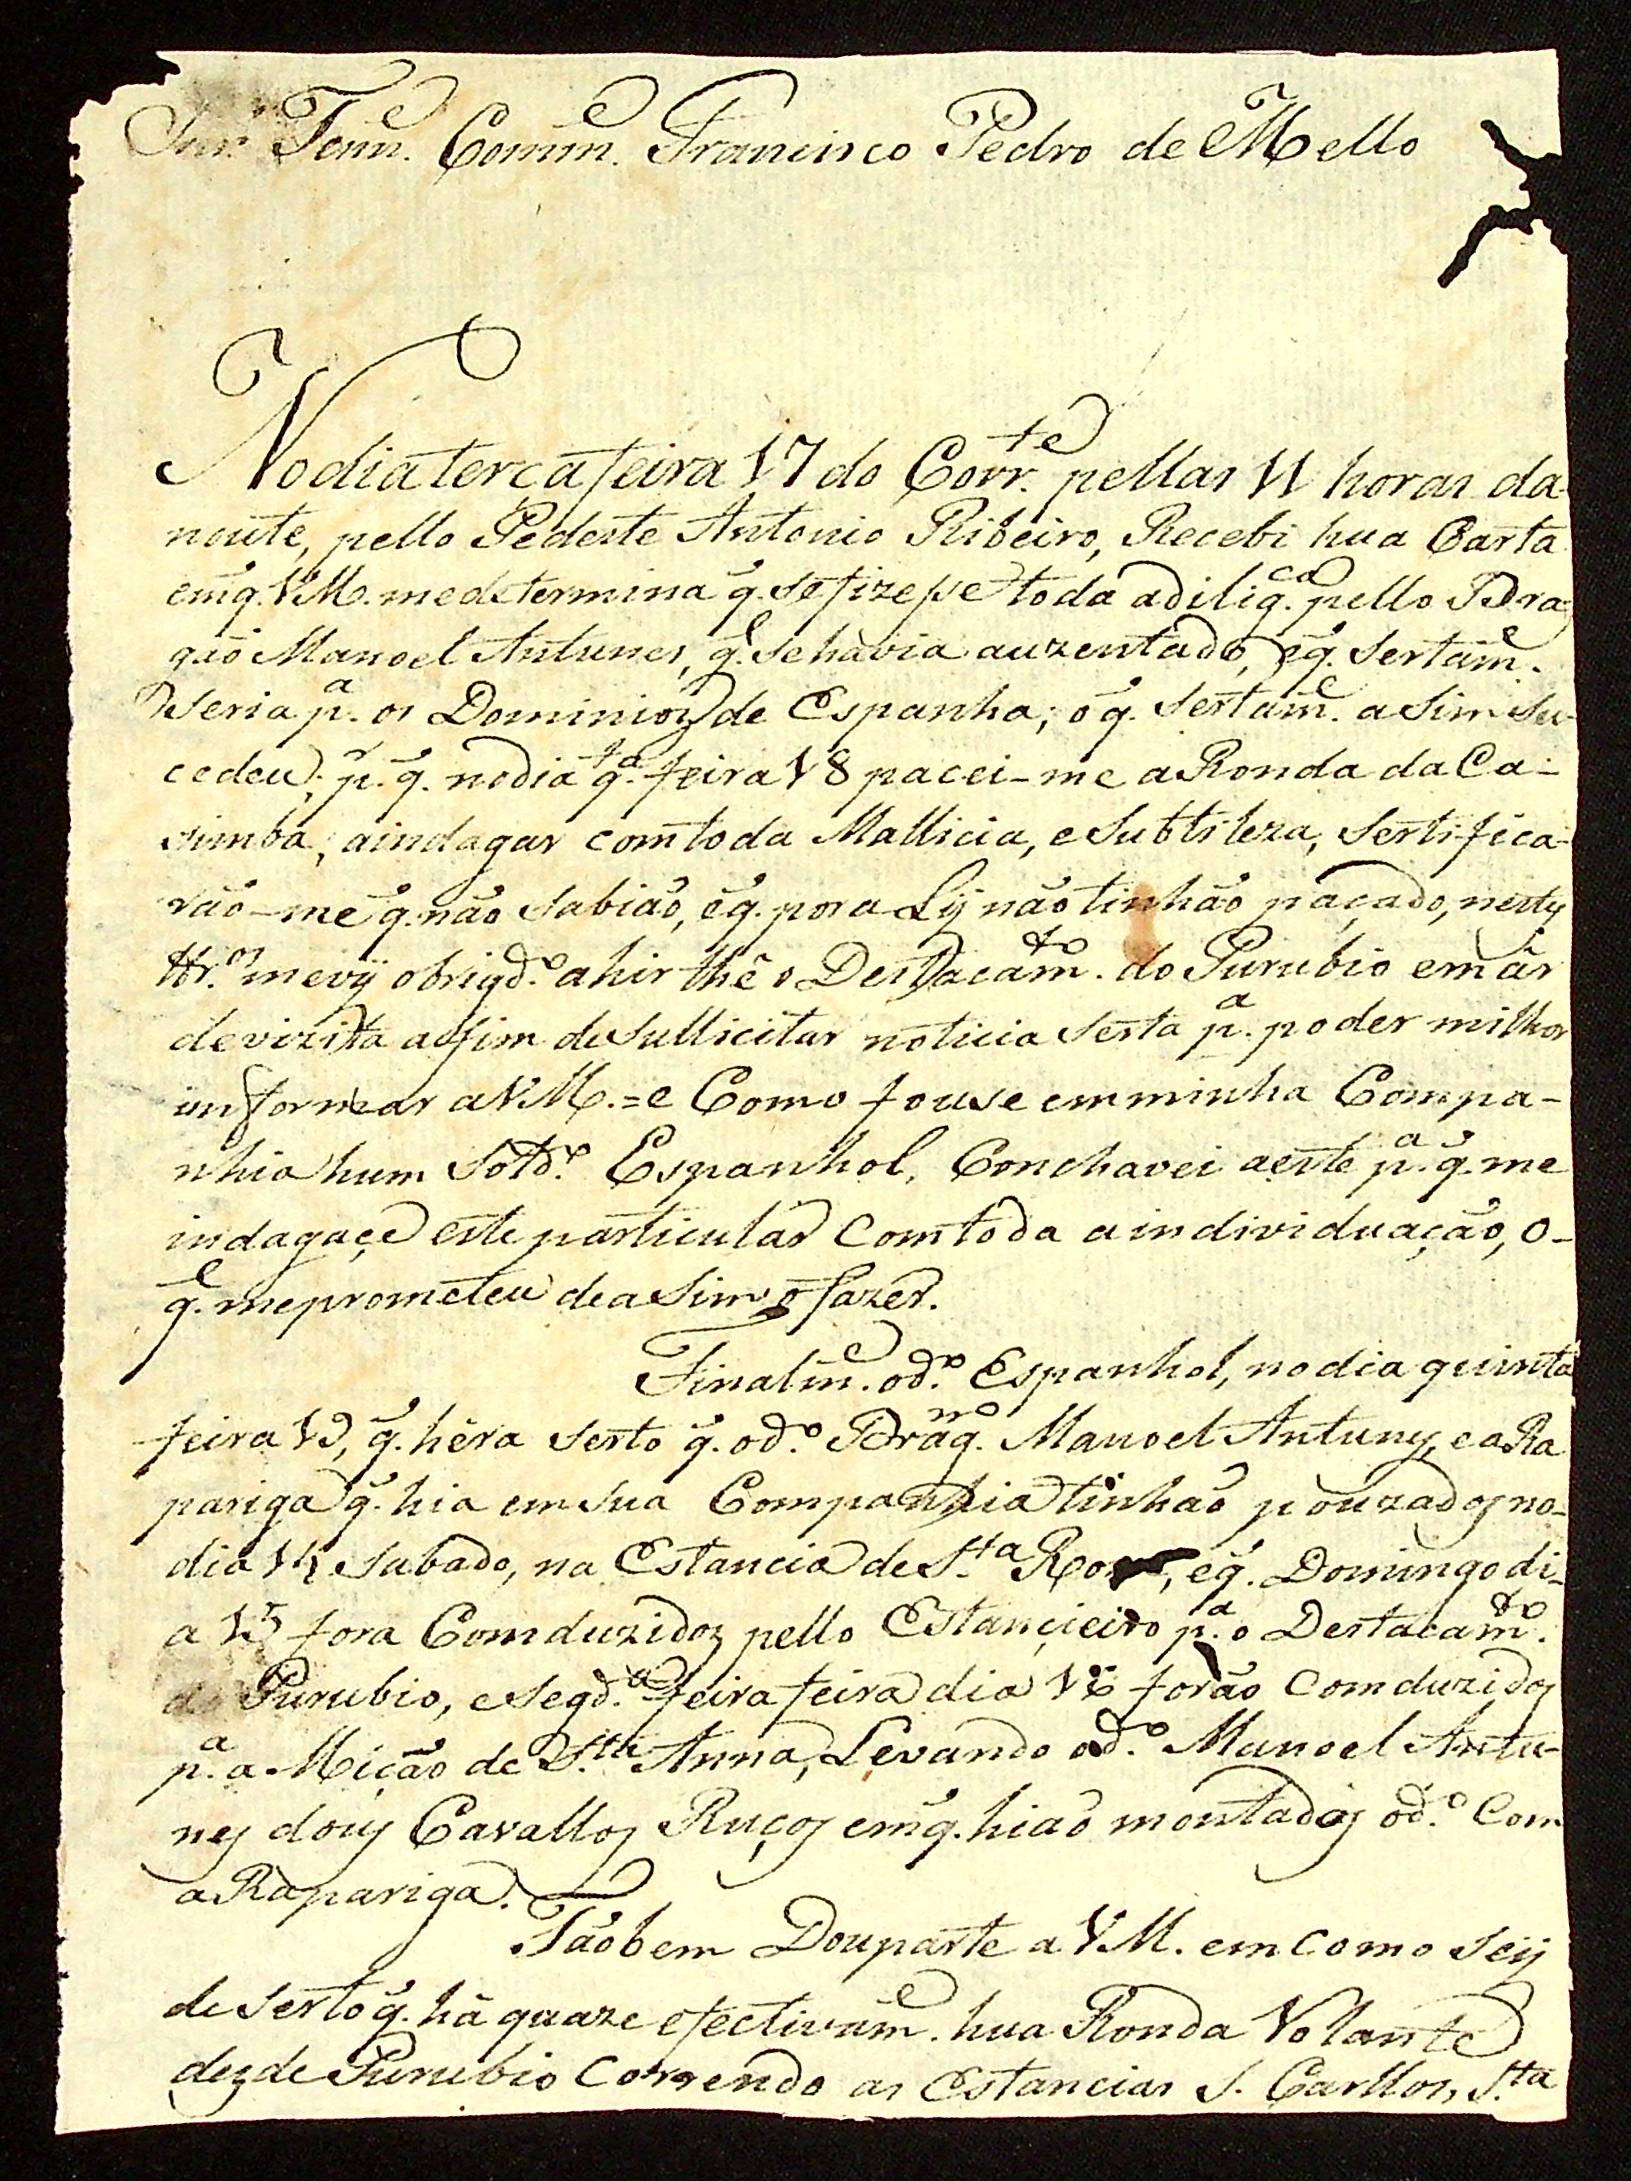 Snr. Tenn.e Comm.e Francisco Pedro de Mello
No dia terça feira 17 do Corr.te pellas 11 horas da
noute, pello Pedeste Antonio Ribeiro, Recebi hua Carta
em q. VM. me detremina q. se fizeſse toda a dilig.ca pello Dra-
gaõ Manoel Antunes, q.e se havia auzentado, e q. sertam.e
seria p.a os Dominioz de Espanha; o q. sertam.e a Sim Su-
cedeu; p.r q. no dia q.ta feira 18 pacei-me a Ronda da Ca-
simba, aindagar com toda Mallicia, e Subtileza, Sertifica-
raõ-me q. naõ Sabiaõ, e q. por a Lÿ naõ tinhaõ paçado, nestes
tr.os me vÿ obrigd.o ahir thê o Destacam.to do Purubio em âr
de vizita afim de Sullicitar noticia Serta p.a poder milhor
informar a VM. = e Como fouse em minha Compa-
nhia hum Sold.o Espanhol, Conchavei aeste p.a q. me
indagaçe este particular Com toda a individuaçaõ, o-
q.e me prometeu de a Sim o fazer.
Finalm.e o d.o Espanhol, no dia quinta
feira 19, q. hêra Serto q. o d.o Drag.no Manoel Antunes, e a Ra
pariga q. hia em Sua Companhia tinhaõ pouzados no-
dia 14 Sabado, na Estancia de S.ta Roza, e q. Domingo di-
a 15 fora Comduzidoz pello Estançieiro p.a o Destacam.to
do Purubio, e Segd.a feira feira dia 16 foraõ Comduzidos
p.a a Miçaõ de S.ta Anna, Levando o d.o Manoel Antu-
nes dous Cavallos Ruços em q. hiaõ montados o d.o Com
a Rapariga.
Taõbem Dou parte a VM. em como Seÿ
de Serto q. hâ quaze efectivam.e hua Ronda Volante
dezde Purubio Correndo as Estancias S. Carllos, S.ta